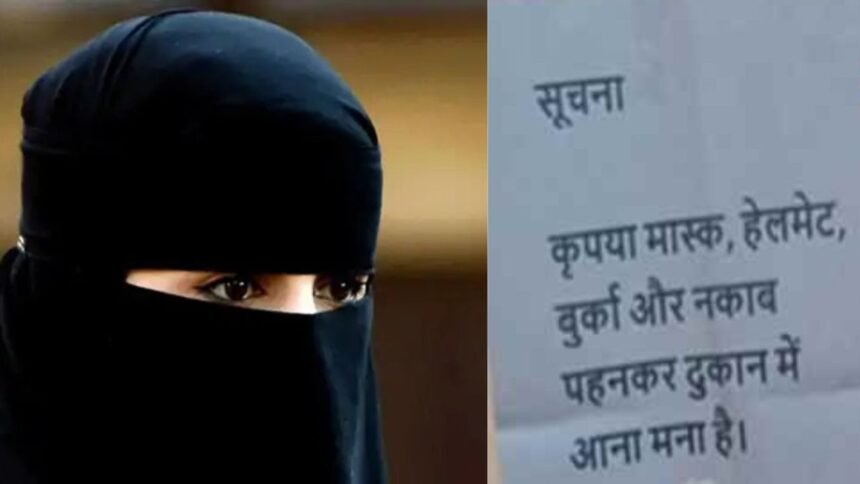 सूचना
कृपया मास्क, हेलमेट,
बुर्का और नकाब
पहनकर दुकान में
आना मना है।